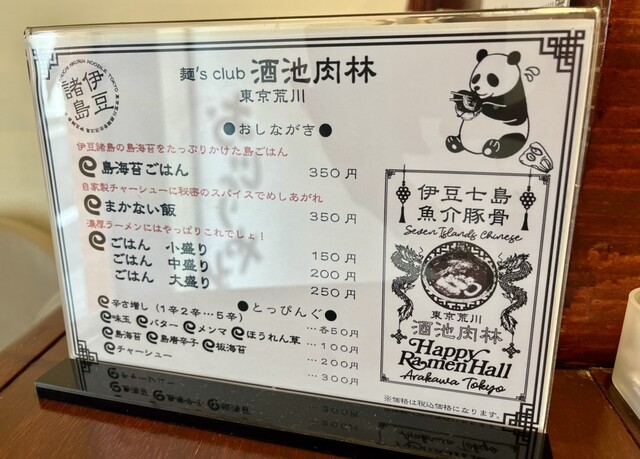 伊豆諸島
麺's club 酒池肉林
東京荒川
●おしながき●
伊豆諸島の島海苔をたっぷりかけた島ごはん
島海苔ごはん 350円
自家製チャーシューに秘密のスパイスでめしあがれ
まかない飯 350円
濃厚ラーメンにはやっぱりこれでしょ!
ごはん 小盛り 150円
ごはん 中盛り 200円
ごはん 大盛り 250円
●とっぴんぐ●
辛さ増し(1辛2辛…5辛) …各50円
味玉 バター メンマ ほうれん草 …100円
島海苔 島唐辛子 板海苔 …200円
チャーシュー …300円
伊豆七島
魚介豚骨
Seven Islands Chinese
東京荒川
酒池肉林
Happy
Ramen Hall
Arakawa Tokyo
※価格は税込価格になります。